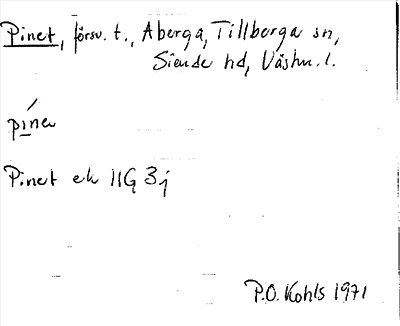 Pinet, försv. t., Åberga, Tillberga sn,
Siende hd, Västm. l.
pi̱ne
Pinet ek 11G 3j
P.O. Kohls 1971